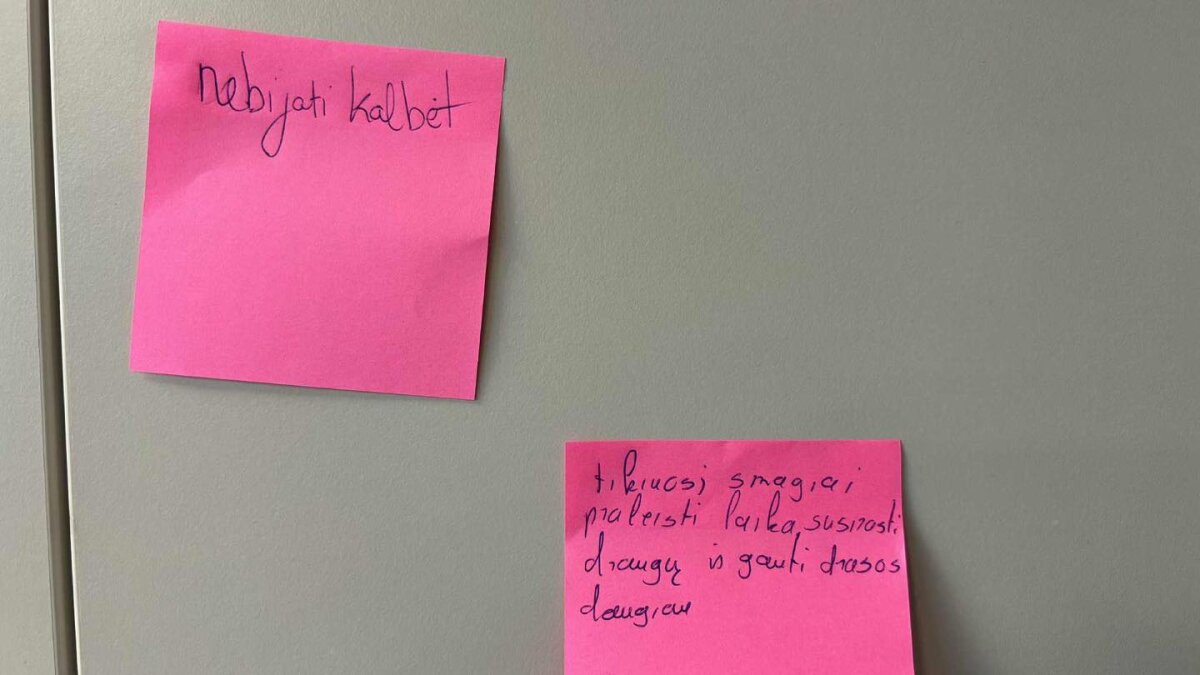 nebijati kalbėt
tikiuosi smagiai
praleisti laika, susirasti
draugų ir gauti drasos
daugiau